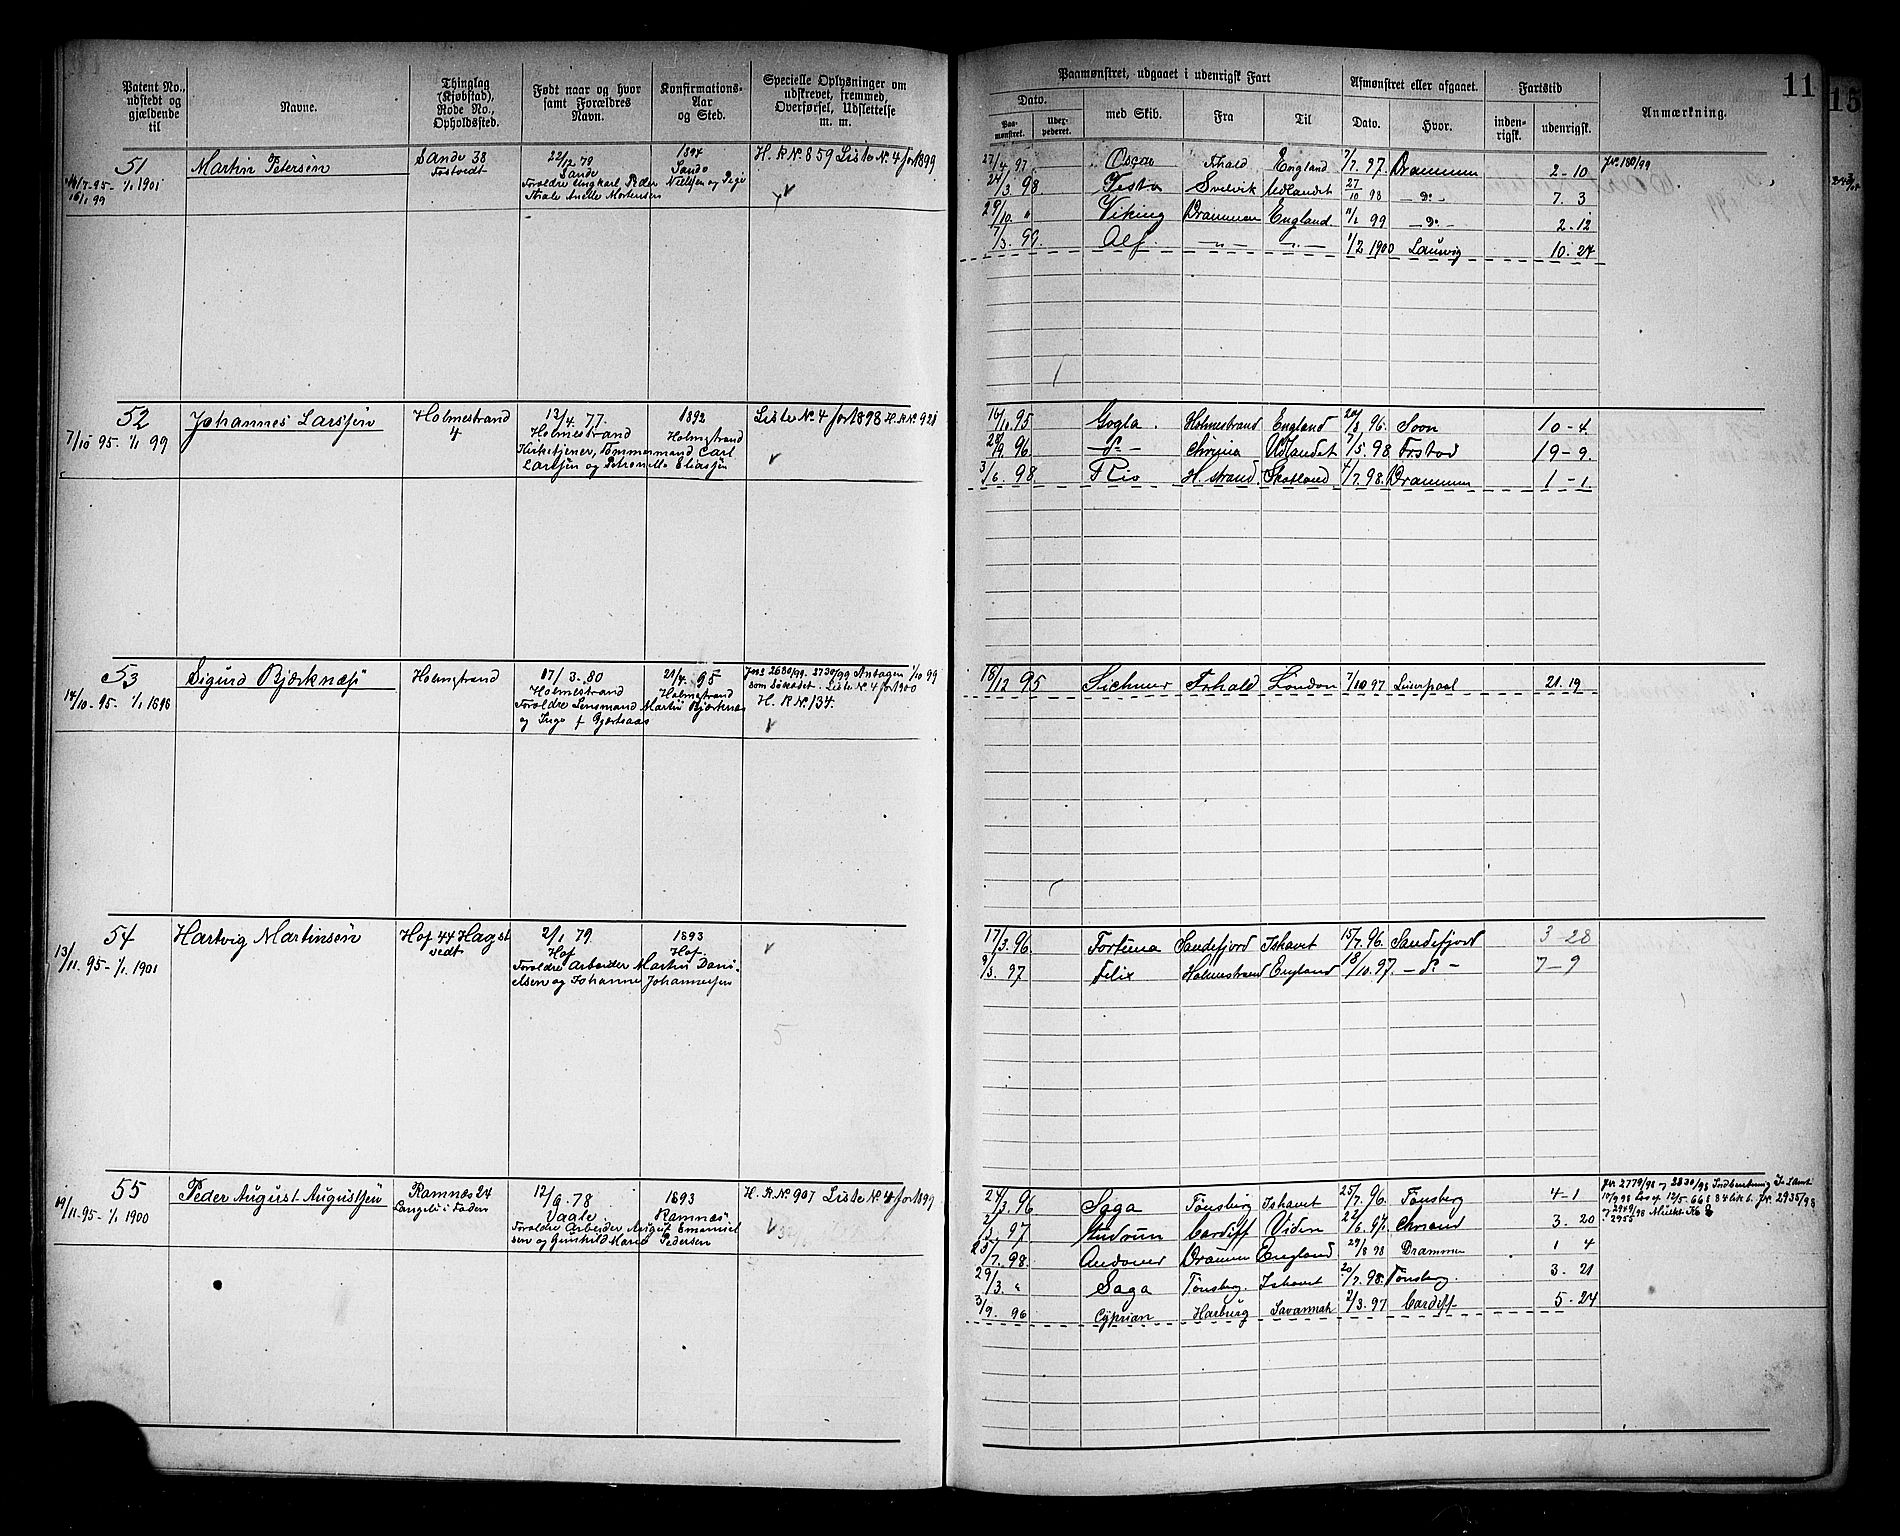 Patent No., udstedt og gjældende til
Navne.
Thinglag (Kjøbstad), Rode No., Opholdssted.
Født naar og hvor samt Forældres Navn.
Konfirmations-Aar og Sted.
Specielle Oplysninger om udskrevet, fremmed, Overførsel, Udslettelse m. m.
51
Martin Petersen
Sande 38
Forstvedt
22/2 79
Sande
1894
Sande
H. R No. 859 Liste No. 4 for 1899
16/7-95- 1/1 1901
16/1 99
52
Johannes Larssen
Holmestrand
4
13/4. 77.
Holmestrand
Kirketjener, Tømmermand Carl
Larssen og Petronille Eliassen
1892
Holmestrand
Liste No. 4 for 1898 H. R. No. 921
7/10 95. 1/1 99
53
Sigurd Bjerknæs
Holmestrand
17/3. 80
Holmestrand
Forældre Lensmand Martin Bjerknæs
og Inga f Bjertsaas
24/4. 95
Holmestrand
2680/99. 2730/99 Antagen 1/10 99
som søkadet. Liste No. 4 for 1900
H. R No. 134.
14/10. 95. 1/1 1896
54
Hartvig Martinsen
Hof 44 Hagst
vedt
2/1 79
Hof
Forældre Arbeider Martin Dani-
elsen og Johanne Johannessen
1893
Hof
13/11. 95- 1/1. 1901
5
55
Peder August Augustsen
Ramnæs 24
12/9. 78
Vaale
Forældre Arbeider August Emanuel
sen og Gunhild Marie Pedersen
1893
Ramnæs
H. R No. 907 Liste No. 4 for 1899
19/11. 95- 1/1 1900
11
15
Paamønstret, udgaaet i udenrigsk Fart
Afmønstret eller afgaaet.
Fartstid
Anmærkning.
Dato.
Paa-mønstret.
med Skib.
Fra
Til
Dato.
Hvor.
inden-rigsk.
udenrigsk.
27/4 97 Oscar Frhald England 7/7. 97 Drammen 2-10 Jr. 180/99
24/3 98 Festa Svelvik Udlandet 27/10 98 - do - 7. 3
29/10. " Viking Drammen England 11/1 99 - do - 2-12
7/3. 99. Alf. - " - - " - 1/2 1900 Laurvig 10. 24
16/10. 95 Gogla. Holmestrand England 20/8. 96. Soon 10-4
28/9. 96 - do - Chrania Udlandet 7/5. 98 Frstad 19-9.
3/6. 98. Rio H. strand. Skotland 4/7. 98. Drammen 1-1.
18/12 95 Frhald London 7/10 97 Liverpool 21. 19
17/3. 96. Fortuna Sandefjord Ishavet 15/7. 96. Sandefjord 3-28
9/3. 97 Felix Holmestrand England 18/10. 97. - do - 7-9
24/3. 96 Saga Tønsberg Ishavet 25/7. 96. Tønsberg 4-1
2/3. 97 Gudrun Cardiff 22/6. 97. Chrsand 3. 20
25/7. 98. Andover Drammen England 29/8 98 Drammen 1 4
29/3. " Saga Tønsberg. Ishavet 20/7. 98. Tønsberg. 3. 21
3/9. 96 Cyprian Harburg Savannah 2/3. 97 Cardiff 5-24
Jr. 2779/98 og 2830/98